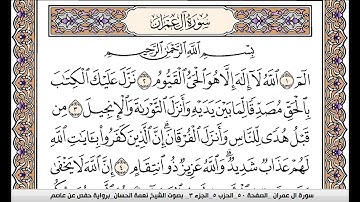 سورة آل عمران
بسم الله الرحمن الرحيم
الٓمٓ ١ ٱللَّهُ لَآ إِلَٰهَ إِلَّا هُوَ ٱلْحَىُّ ٱلْقَيُّومُ ٢ نَزَّلَ عَلَيْكَ ٱلْكِتَٰبَ
بِٱلْحَقِّ مُصَدِّقًا لِّمَا بَيْنَ يَدَيْهِ وَأَنزَلَ ٱلتَّوْرَىٰةَ وَٱلْإِنجِيلَ ٣ مِن
قَبْلُ هُدًى لِّلنَّاسِ وَأَنزَلَ ٱلْفُرْقَانَ إِنَّ ٱلَّذِينَ كَفَرُوا۟ بِـَٔايَٰتِ ٱللَّهِ
لَهُمْ عَذَابٌ شَدِيدٌ وَٱللَّهُ عَزِيزٌ ذُو ٱنتِقَامٍ ٤ إِنَّ ٱللَّهَ لَا يَخْفَىٰ
سورة ال عمران الصفحة ٥٠ الحزب ٥ الجزء ٣ بصوت الشيخ نعمة الحسان برواية حفص عن عاصم